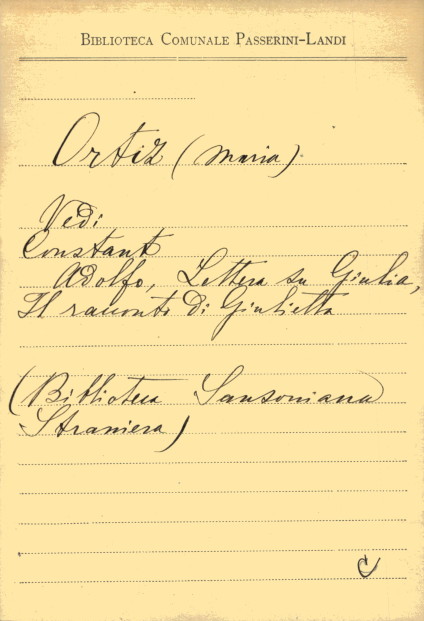 BIBLIOTECA COMUNALE PASSERINI-LANDI
Ortiz (Maria)
Vedi
Constant
Adolfo, Lettera su Giulia,
Il racconto di Giulietta
(Biblioteca Sansoniana
Straniera)